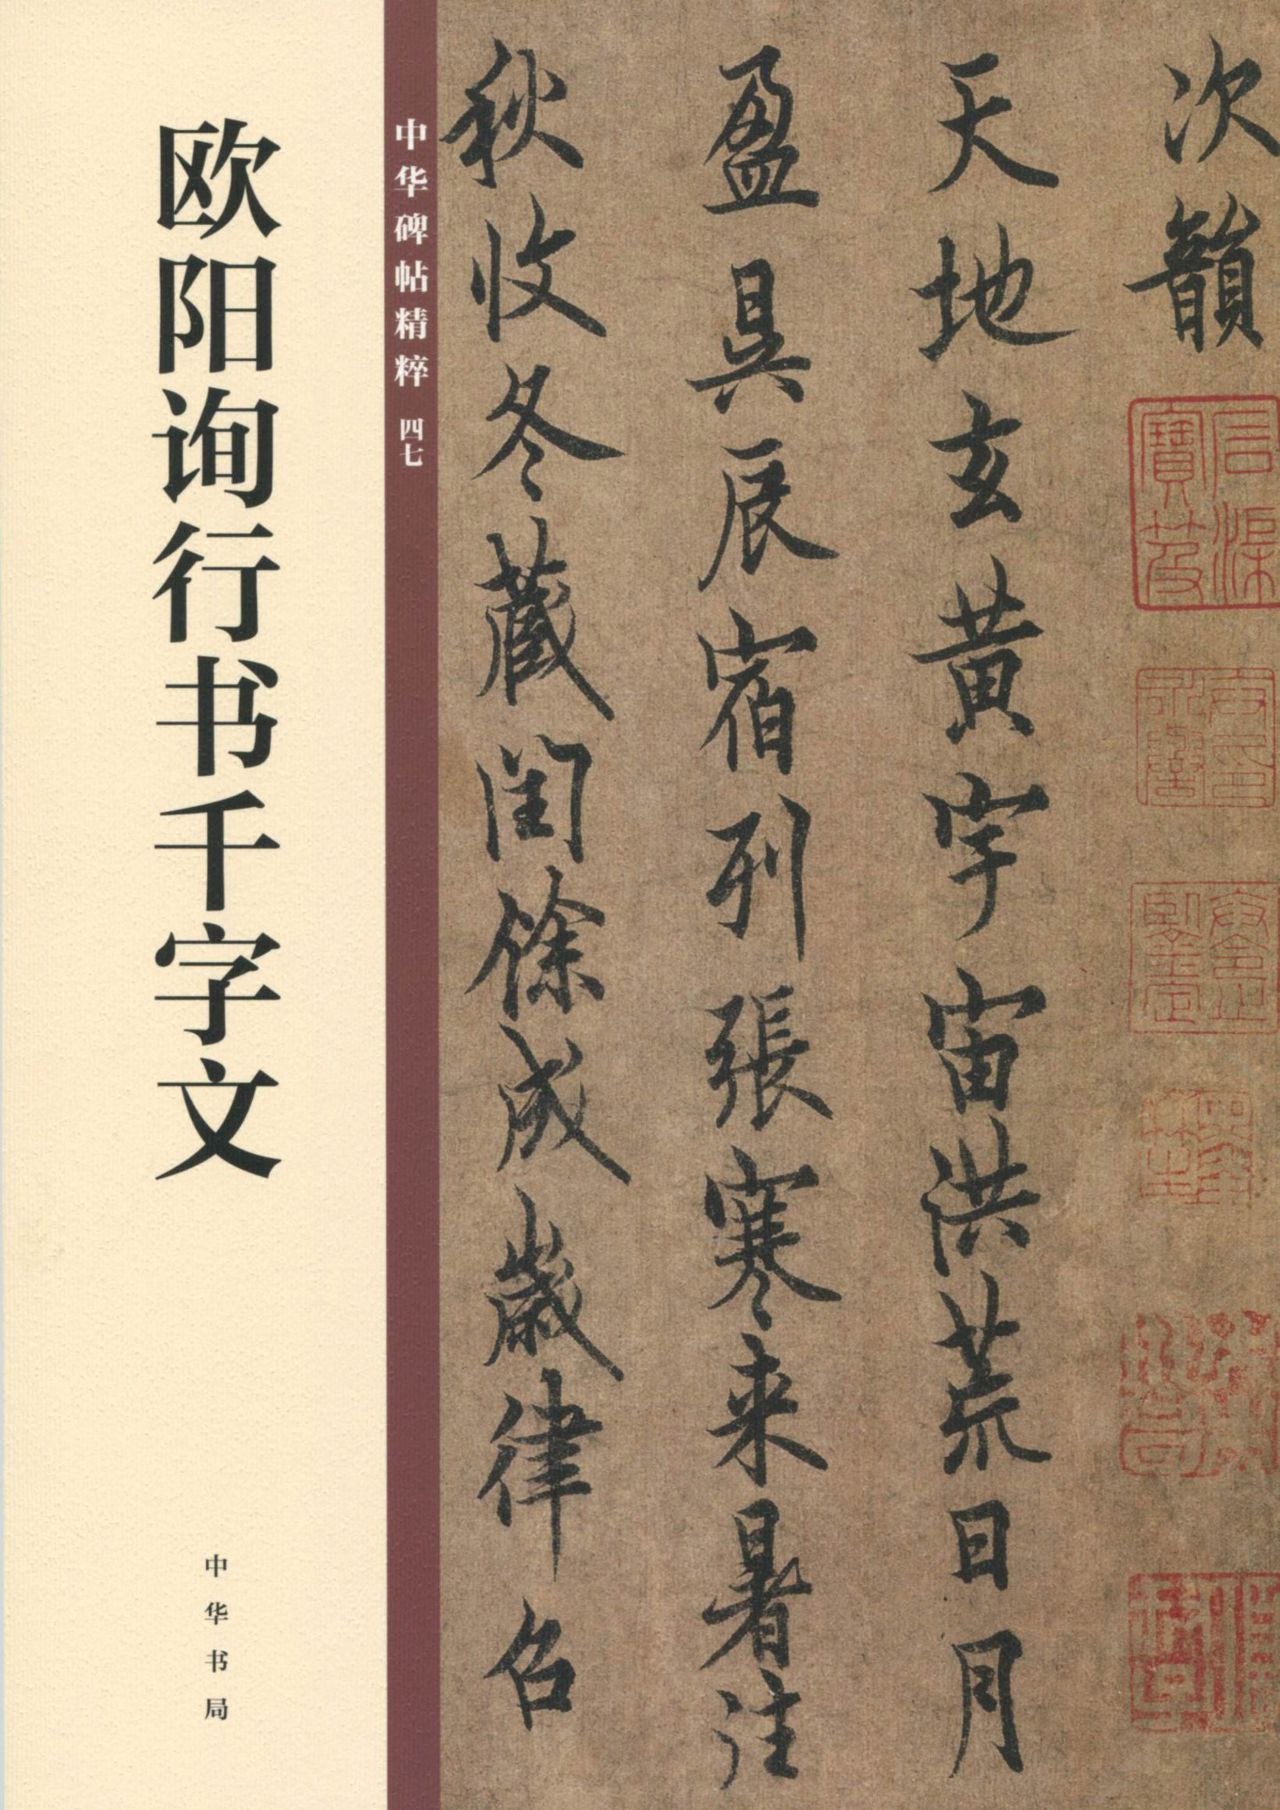 欧阳询行书千字文
中华书局
中华碑帖精粹 四七
次韻
天地玄黄宇宙洪荒日月
盈昃辰宿列張寒来暑往
秋收冬藏閏餘成歲律召